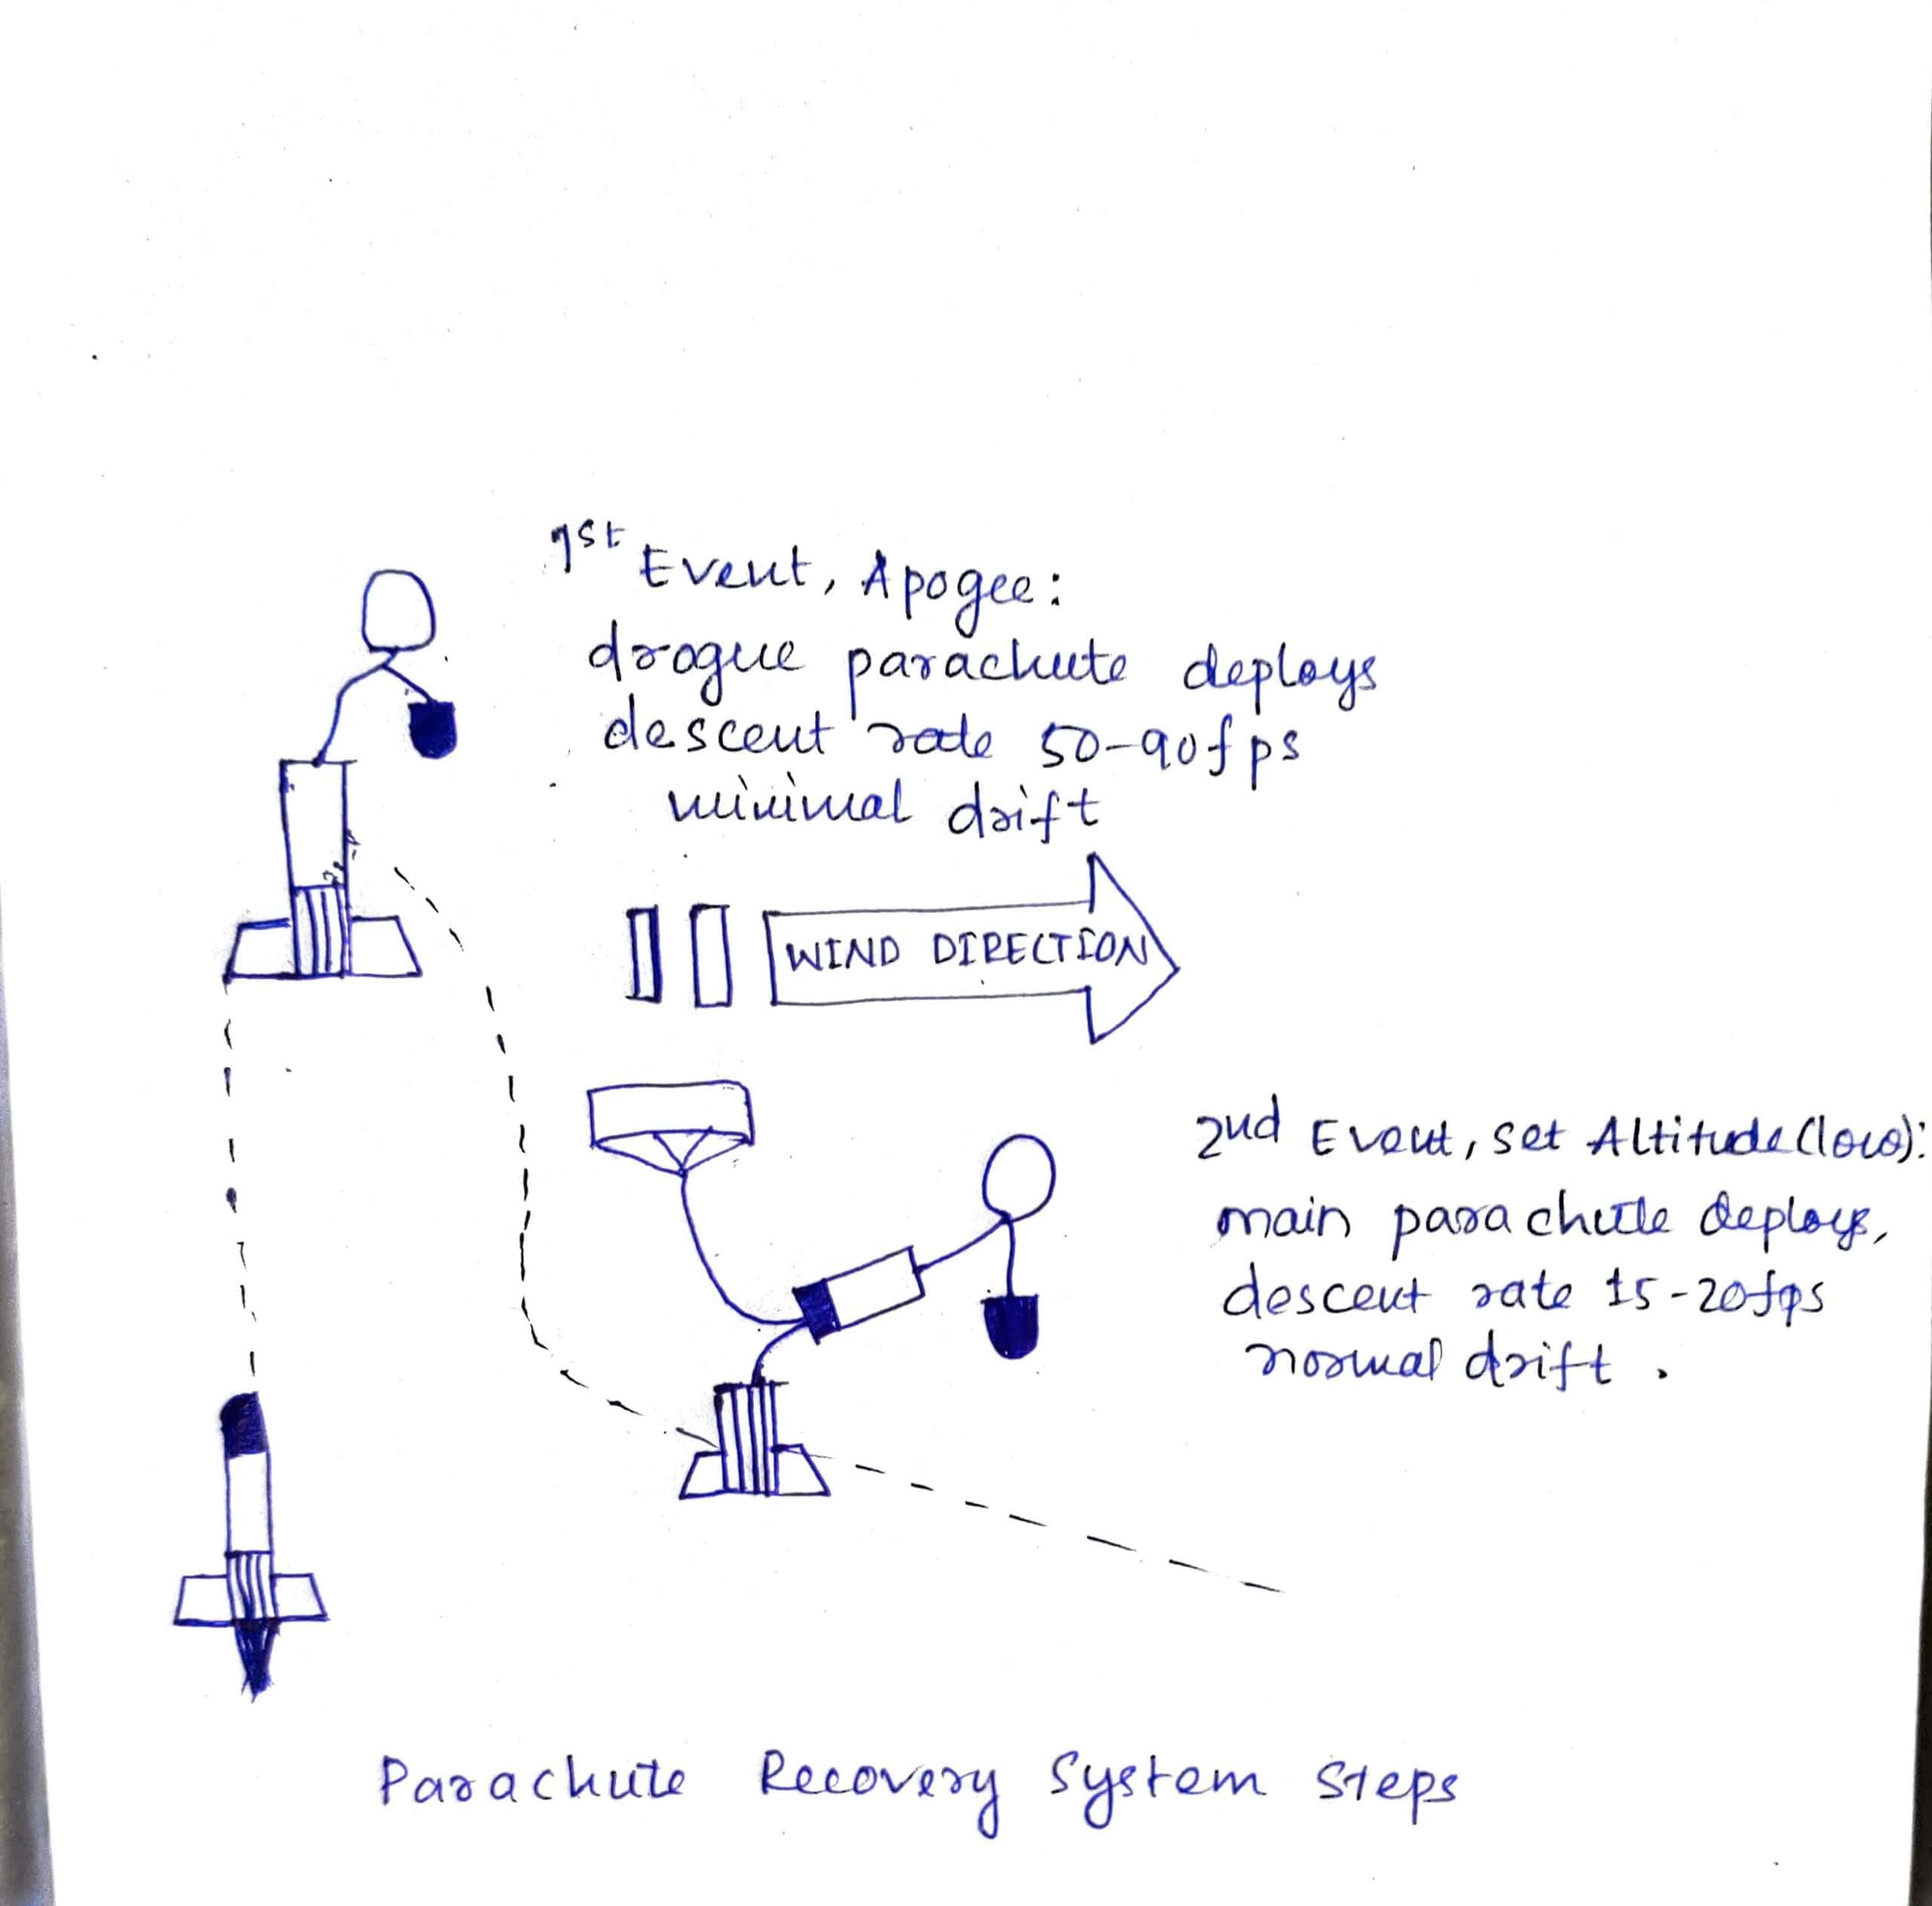 1st Event, Apogee:
drogue parachute deploys
descent rate 50-90fps
minimal drift
WIND DIRECTION
2nd Event, set Altitude(low):
main parachute deploys,
descent rate 15-20fps
normal drift .
Parachute Recovery System Steps